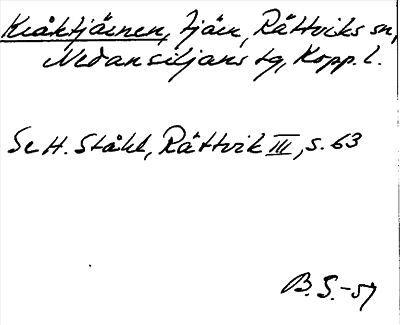 Kråktjärnen, tjärn, Rättviks sn,
Nedansiljans tg, Kopp. l.
Se H. Ståhl, Rättvik III, s. 63
B. S. -57